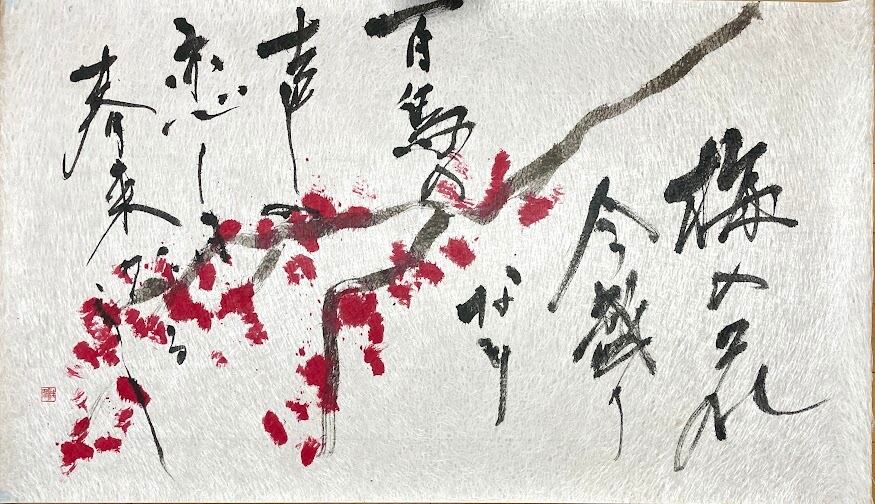 梅の花
今盛り
なり
百鳥の
声の
恋しき
春来たるらし